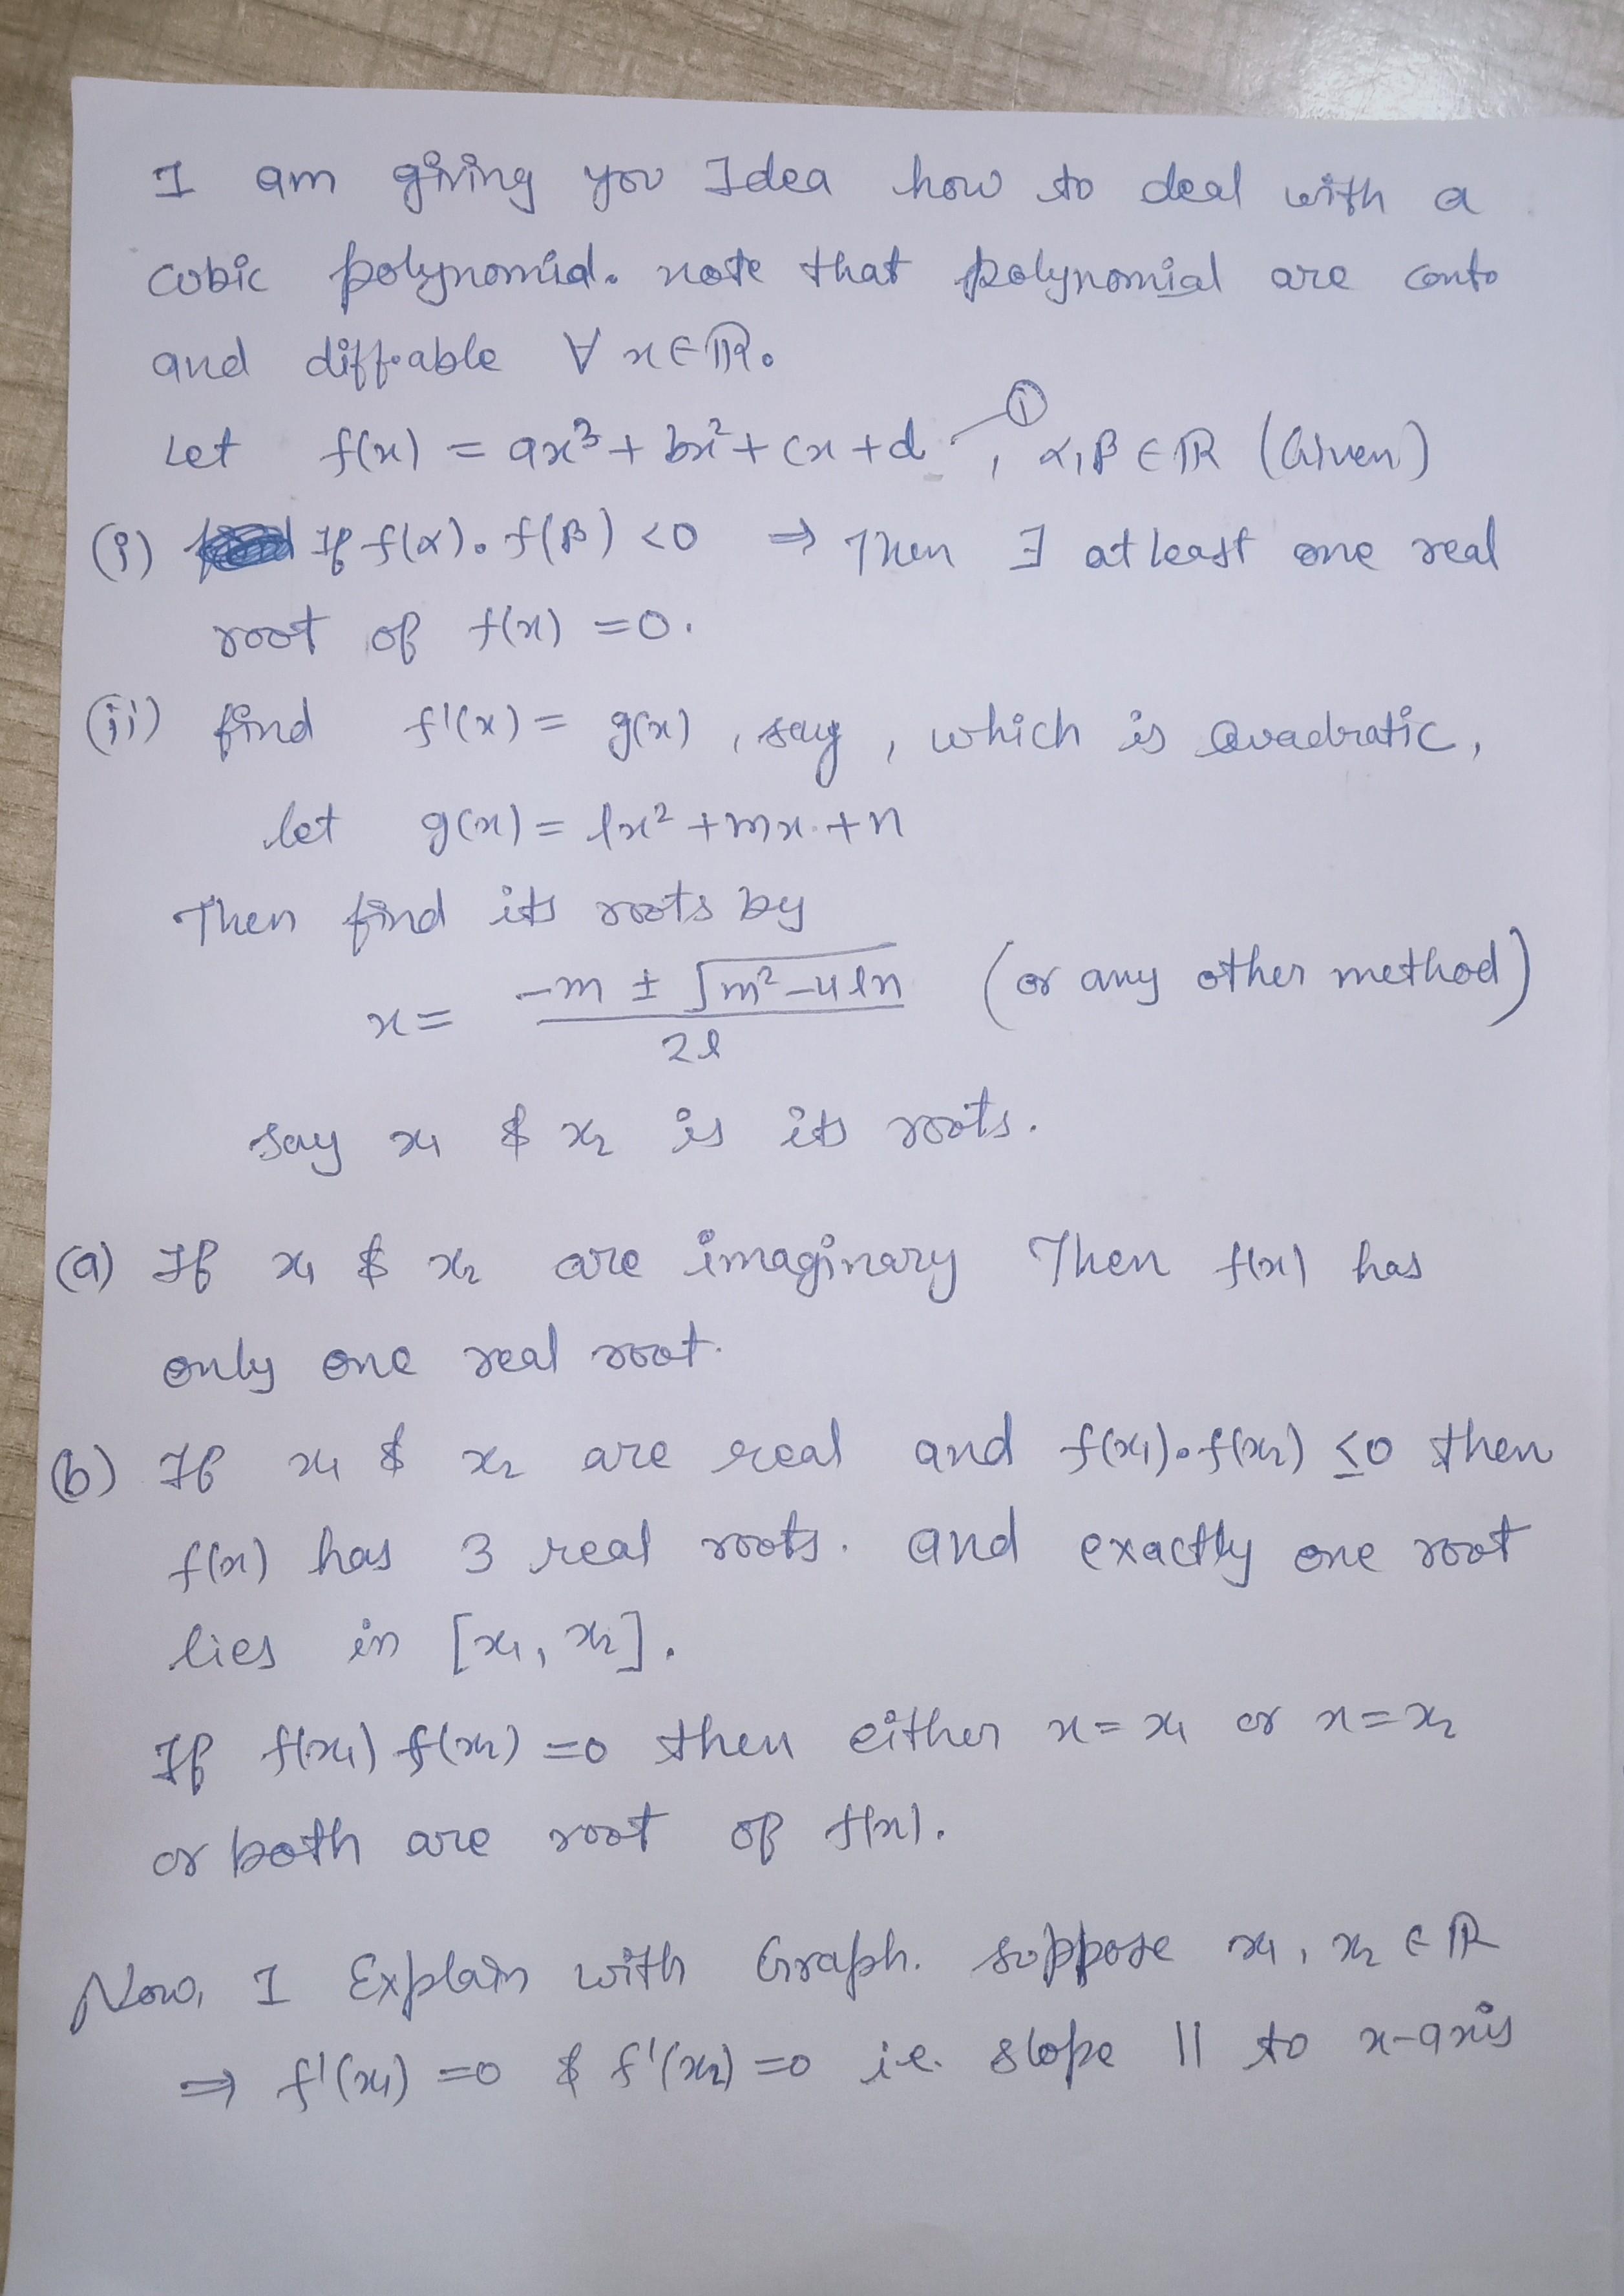 I am giving you Idea how to deal with a
cubic polynomial. note that polynomial are conto
and diff.able ∀ x∈ℝ.
Let f(x) = ax³ + bx² + cx + d —①, α,β ∈ ℝ (Given)
(i) If f(α). f(β) <0 ⇒ Then ∃ atleast one real
root of f(x) =0.
(ii) find f'(x) = g(x), say, which is Quadratic,
let g(x) = lx² + mx + n
Then find its roots by
x = (-m ± √(m²-4ln))/2l (or any other method)
say x₁ & x₂ is its roots.
(a) If x₁ & x₂ are imaginary Then f(x) has
only one real root.
(b) If x₁ & x₂ are real and f(x₁).f(x₂) ≤0 then
f(x) has 3 real roots. and exactly one root
lies in [x₁, x₂].
If f(x₁) f(x₂) =0 then either x = x₁ or x = x₂
or both are root of f(x).
Now, I Explain with Graph. suppose x₁, x₂ ∈ ℝ
⇒ f'(x₁) =0 & f'(x₂) =0 i.e. slope || to x-axis